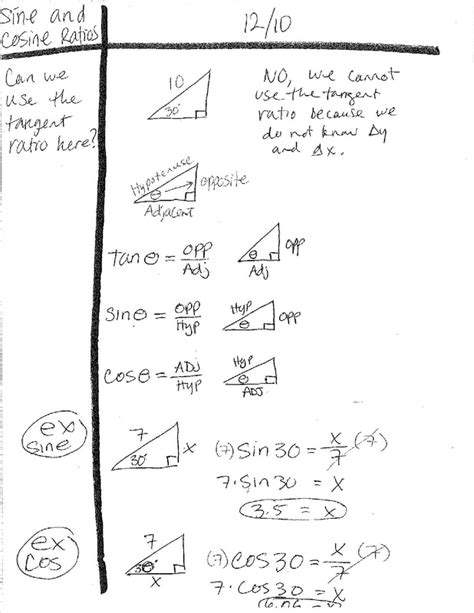 Sine and
Cosine Ratios
12/10
Can we
use the
tangent
ratio here?
10
30°
NO, we cannot
use the tangent
ratio because we
do not know Δy
and Δx.
Hypotenuse
θ
opposite
Adjacent
tanθ = opp/Adj
θ
opp
Adj
sinθ = opp/Hyp
Hyp
θ
opp
cosθ = ADJ/Hyp
Hyp
θ
ADJ
ex
sine
7
30°
x
(7) sin 30 = x/7 (7)
7·sin 30 = x
3.5 = x
ex
cos
7
30°
x
(7) cos 30 = x/7 (7)
7·cos 30 = x
= x